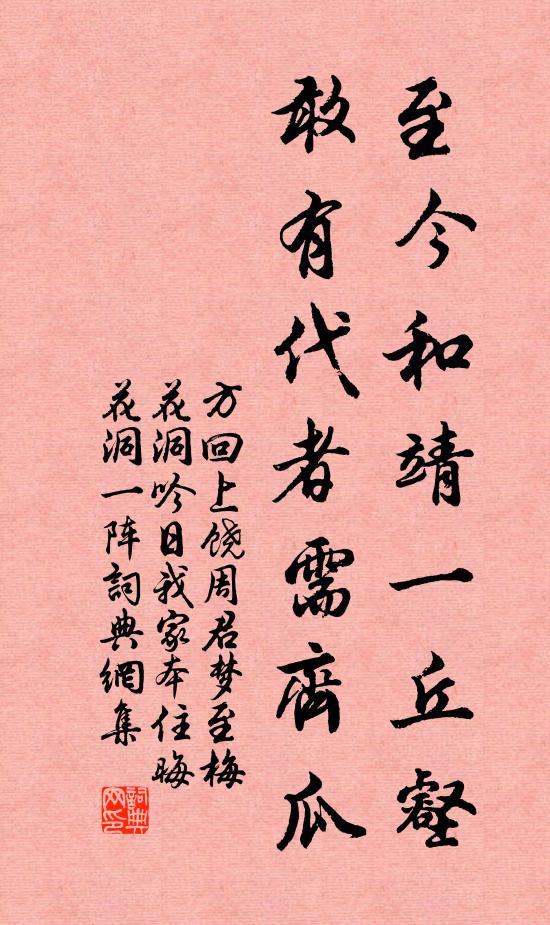 至今和靖一丘壑
敢有代者需齊瓜
方回上饶周君梦至梅
花洞吟日我家本住晦
花洞一阵詞典網集
詞典网印